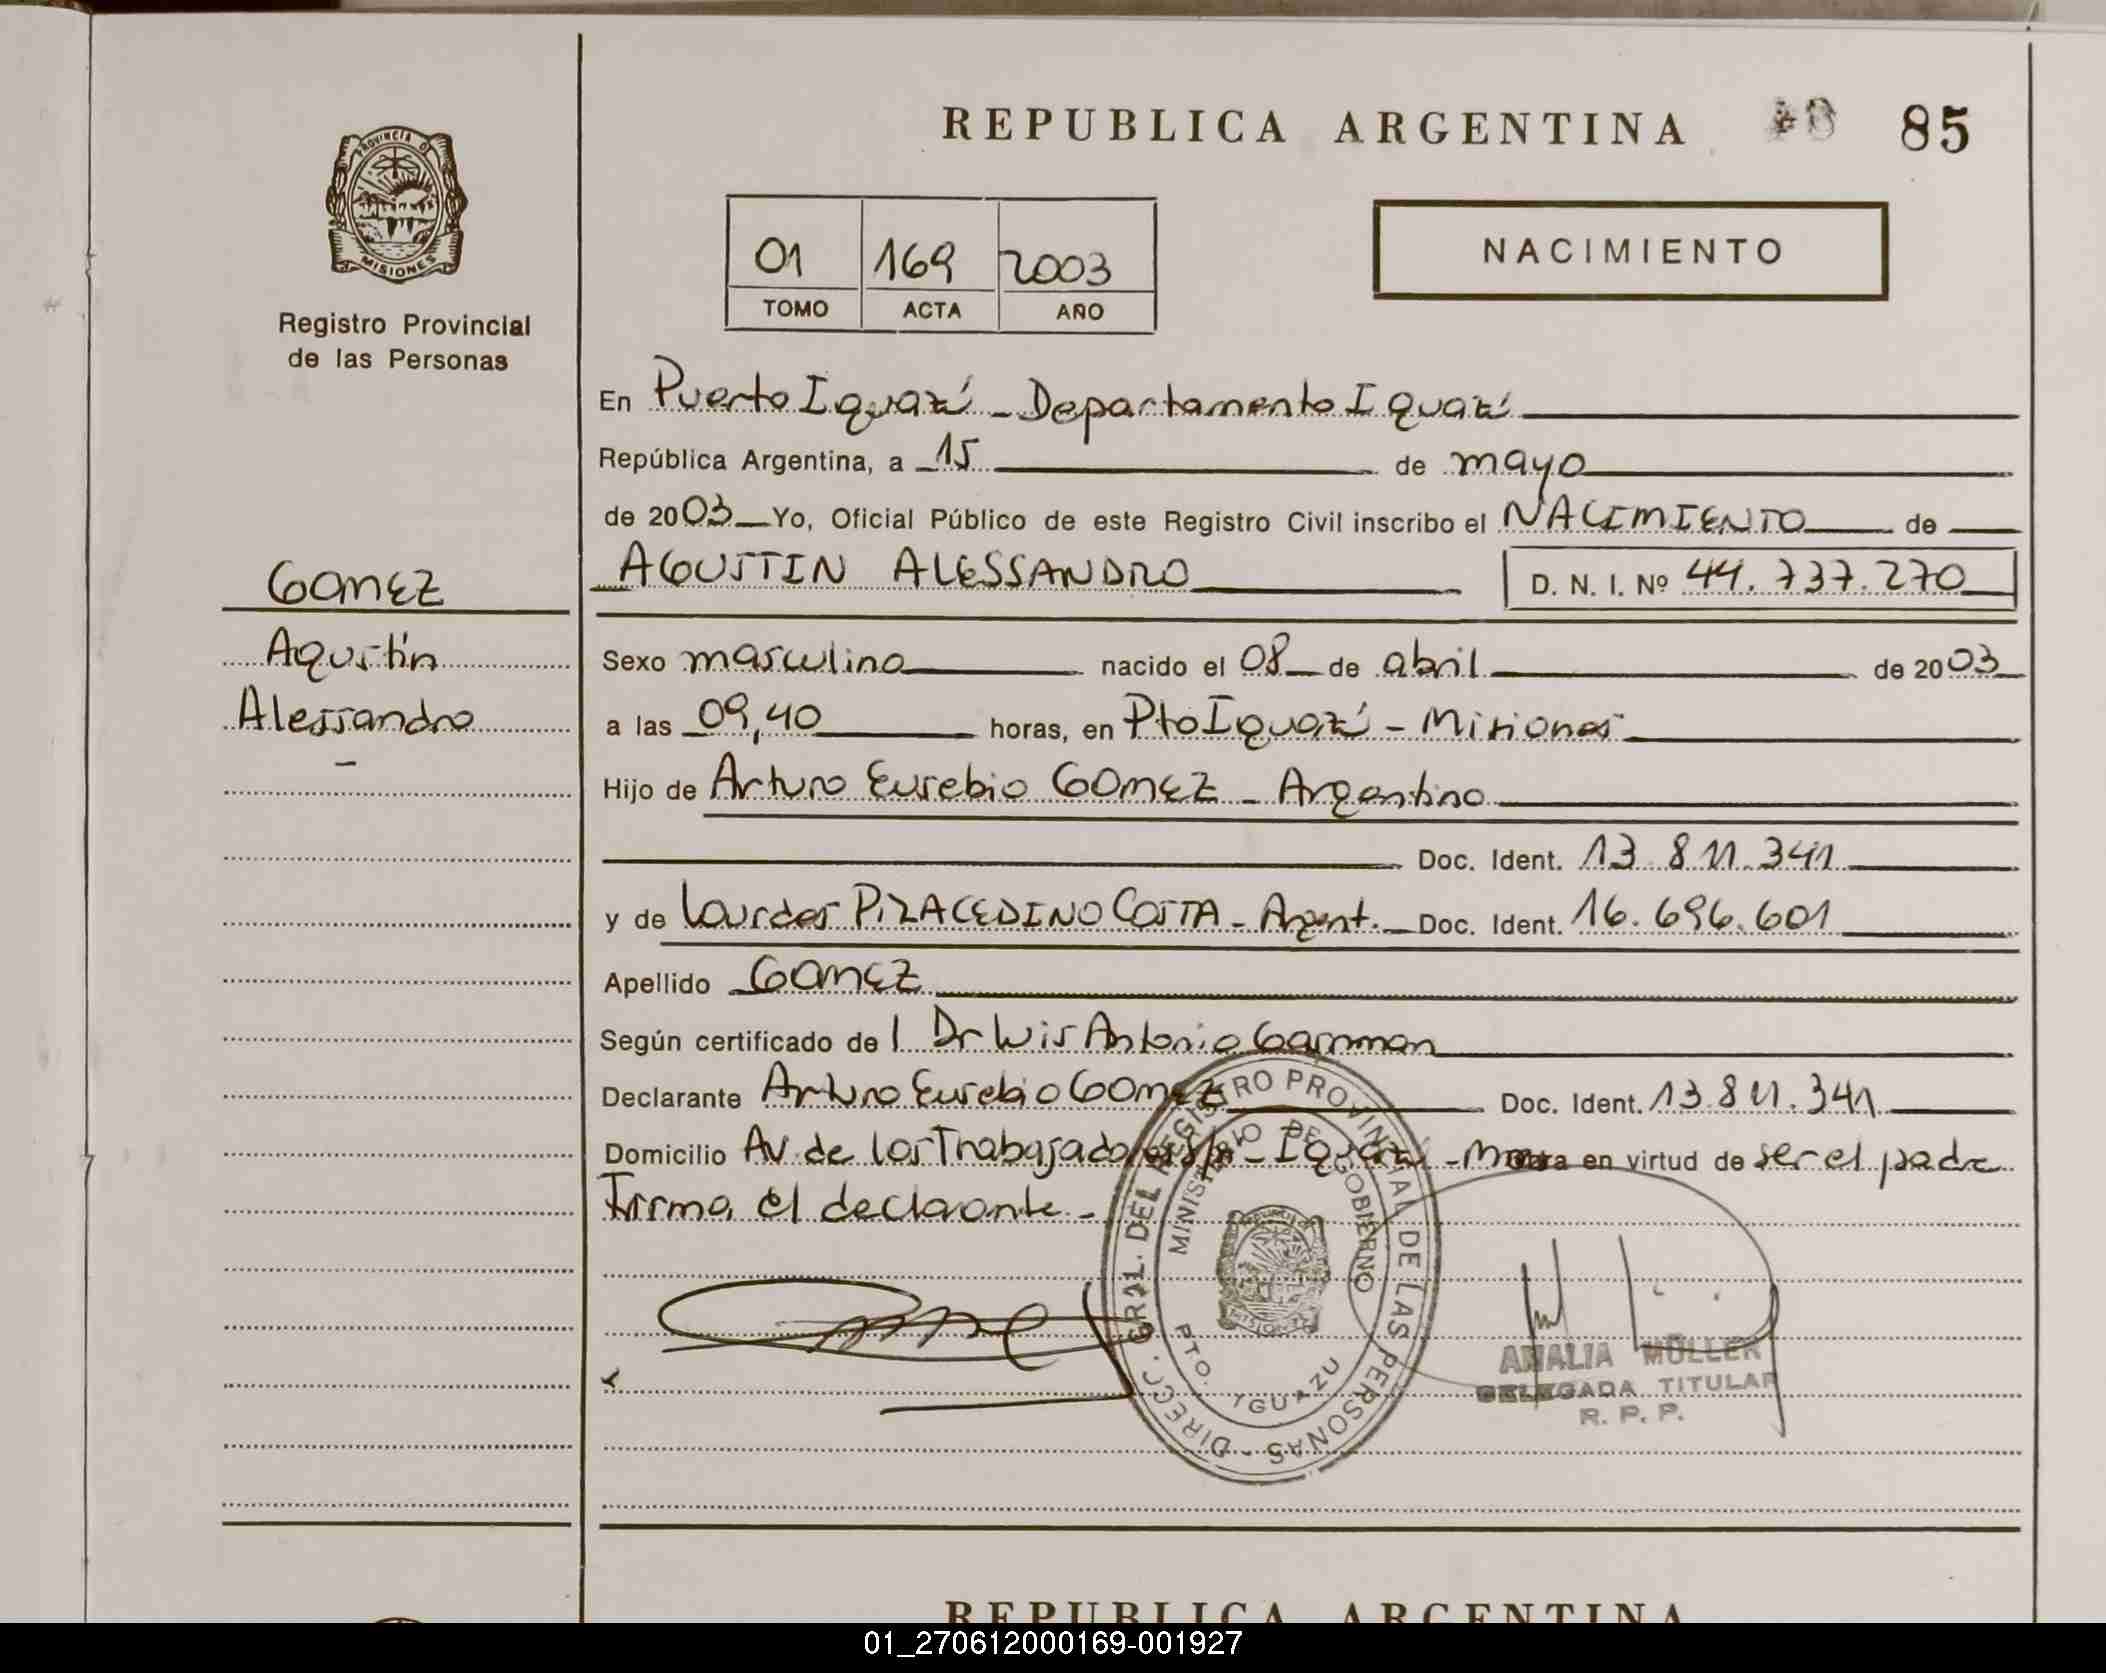 REPUBLICA ARGENTINA 85
PROVINCIA D
MISIONES
Registro Provincial
de las Personas
01 169 2003
TOMO ACTA AÑO
NACIMIENTO
En Puerto Iguazú - Departamento Iguazú
República Argentina, a 15 de mayo
de 2003 Yo, Oficial Público de este Registro Civil inscribo el NACIMIENTO de
AGUSTIN ALESSANDRO D. N. I. Nº 44.737.270
GOMEZ
Agustín
Alessandro
-
Sexo masculino nacido el 08 de abril de 2003
a las 09,40 horas, en Pto Iguazú - Misiones
Hijo de Arturo Eusebio GOMEZ - Argentino
Doc. Ident. 13.811.341
y de Lourdes COSTA - Argent. Doc. Ident. 16.696.601
Apellido GOMEZ
Según certificado de l Dr Luis Antonio
Declarante Arturo Eusebio GOMEZ Doc. Ident. 13.811.341
Domicilio Av. de los Trabajadores s/n - Iguazú - en virtud de ser el padre
Firma el declarante -
DIRECC. GRAL. DEL REGISTRO PROVINCIAL DE LAS PERSONAS -
MINISTERIO DE GOBIERNO
PTO. IGUAZU
MISIONES
ANALIA MÜLLER
DELEGADA TITULAR
R. P. P.
REPUBLICA ARGENTINA
01_270612000169-001927